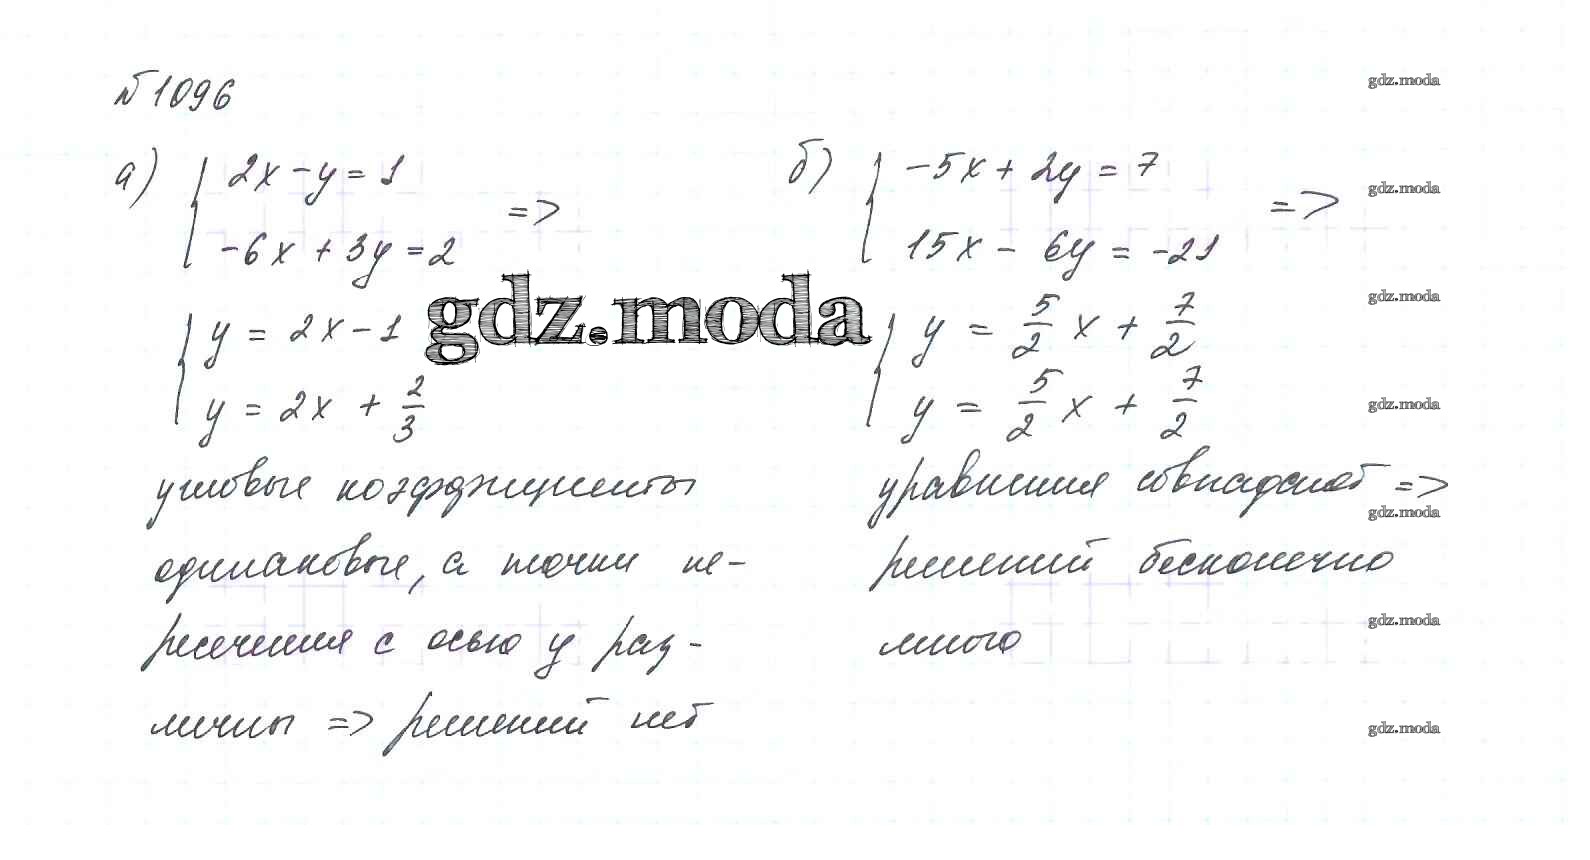 №1096
а) { 2x - y = 1
-6x + 3y = 2 =>
{ y = 2x - 1
y = 2x + 2/3
угловые коэффициенты
одинаковые, а точки пе-
ресечения с осью y раз-
личны => решений нет
б) { -5x + 2y = 7
15x - 6y = -21 =>
{ y = 5/2 x + 7/2
y = 5/2 x + 7/2
уравнения совпадают =>
решений бесконечно
много
gdz.moda
gdz.moda
gdz.moda
gdz.moda
gdz.moda
gdz.moda
gdz.moda
gdz.moda